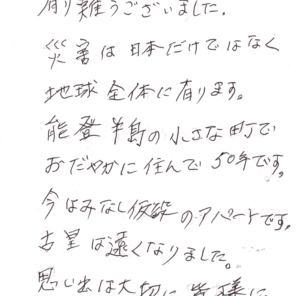 有り難うございました.
災害は日本だけではなく
地球全体に有ります。
能登半島の小さな町で
おだやかに住んで50年です。
今はみなし仮設のアパートです。
古里は遠くなりました。
思い出は大切に皆様に